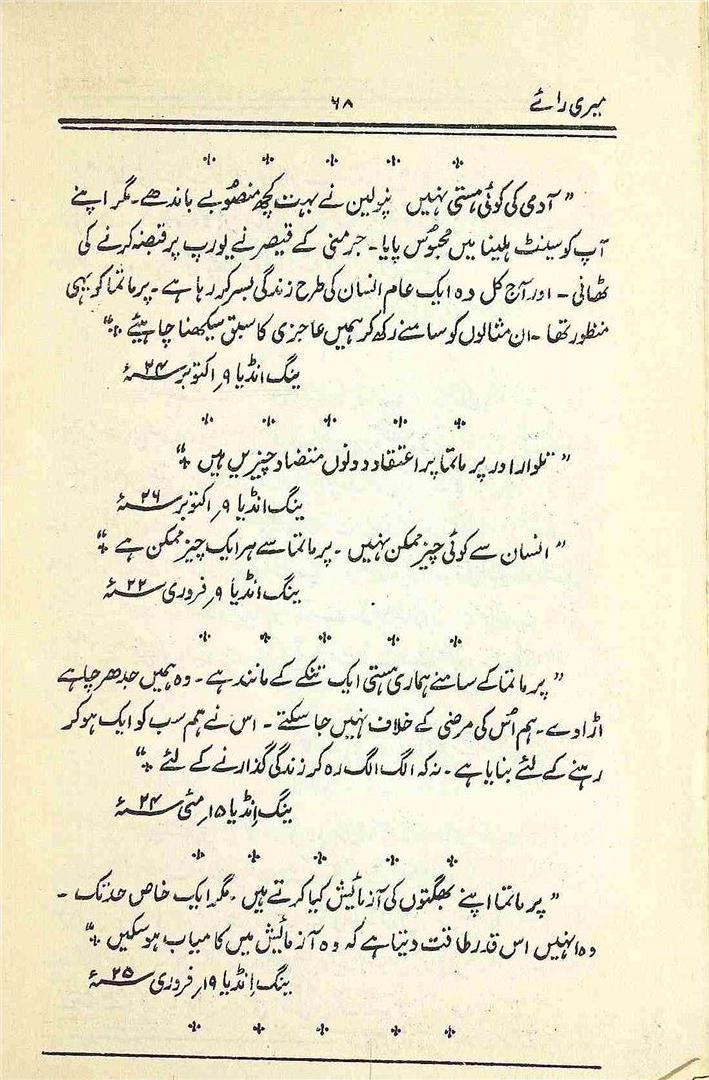 میری رائے ۶۸
⁘ ⁘ ⁘ ⁘ ⁘
” آدمی کی کوئی ہستی نہیں نپولین نے بہت کچھ منصوبے باندھے۔ مگر اپنے
آپ کو سینٹ ہلینا میں محبوُس پایا۔ جرمنی کے قیصر نے یورپ پر قبضہ کرنے کی
ٹھانی۔ اور آج کل وہ ایک عام انسان کی طرح زندگی بسر کر رہا ہے۔ پرماتما کو یہی
منظور تھا۔ ان مثالوں کو سامنے رکھ کر ہمیں عاجزی کا سبق سیکھنا چاہیئے ⁘“
ینگ انڈیا ۹؍ اکتوبر ۲۴ء
⁘ ⁘ ⁘ ⁘ ⁘
” تلوار اور پرماتما پر اعتقاد دونوں متضاد چیزیں ہیں ⁘“
ینگ انڈیا ۹؍ اکتوبر ۲۶ء
” انسان سے کوئی چیز ممکن نہیں۔ پرماتما سے ہر ایک چیز ممکن ہے ⁘“
ینگ انڈیا ۹؍ فروری ۲۲ء
⁘ ⁘ ⁘ ⁘ ⁘
” پرماتما کے سامنے ہماری ہستی ایک تنکے کے مانند ہے۔ وہ ہمیں جدھر چاہے
اڑا دے۔ ہم اُس کی مرضی کے خلاف نہیں جا سکتے۔ اس نے ہم سب کو ایک ہو کر
رہنے کے لئے بنایا ہے۔ نہ کہ الگ الگ رہ کر زندگی گذارنے کے لئے ⁘“
ینگ اِنڈیا ۱۵؍ مئی ۲۴ء
⁘ ⁘ ⁘ ⁘ ⁘
” پرماتما اپنے بھگتوں کی آزمائیش کیا کرتے ہیں۔ مگر ایک خاص حد تک۔
وہ انہیں اس قدر طاقت دیتا ہے کہ وہ آزمائیش میں کامیاب ہو سکیں ⁘“
ینگ اِنڈیا ۱۹؍ فروری ۲۵ء
⁘ ⁘ ⁘ ⁘ ⁘